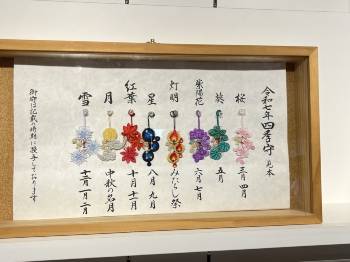 令和七年 四季守 見本
桜
三月 四月
葵
五月
紫陽花
六月 七月
灯明
みたらし祭
星
八月 九月
月
中秋の名月
紅葉
十月 十一月
雪
十二月 一月 二月
御守は記載の時期に授与しております